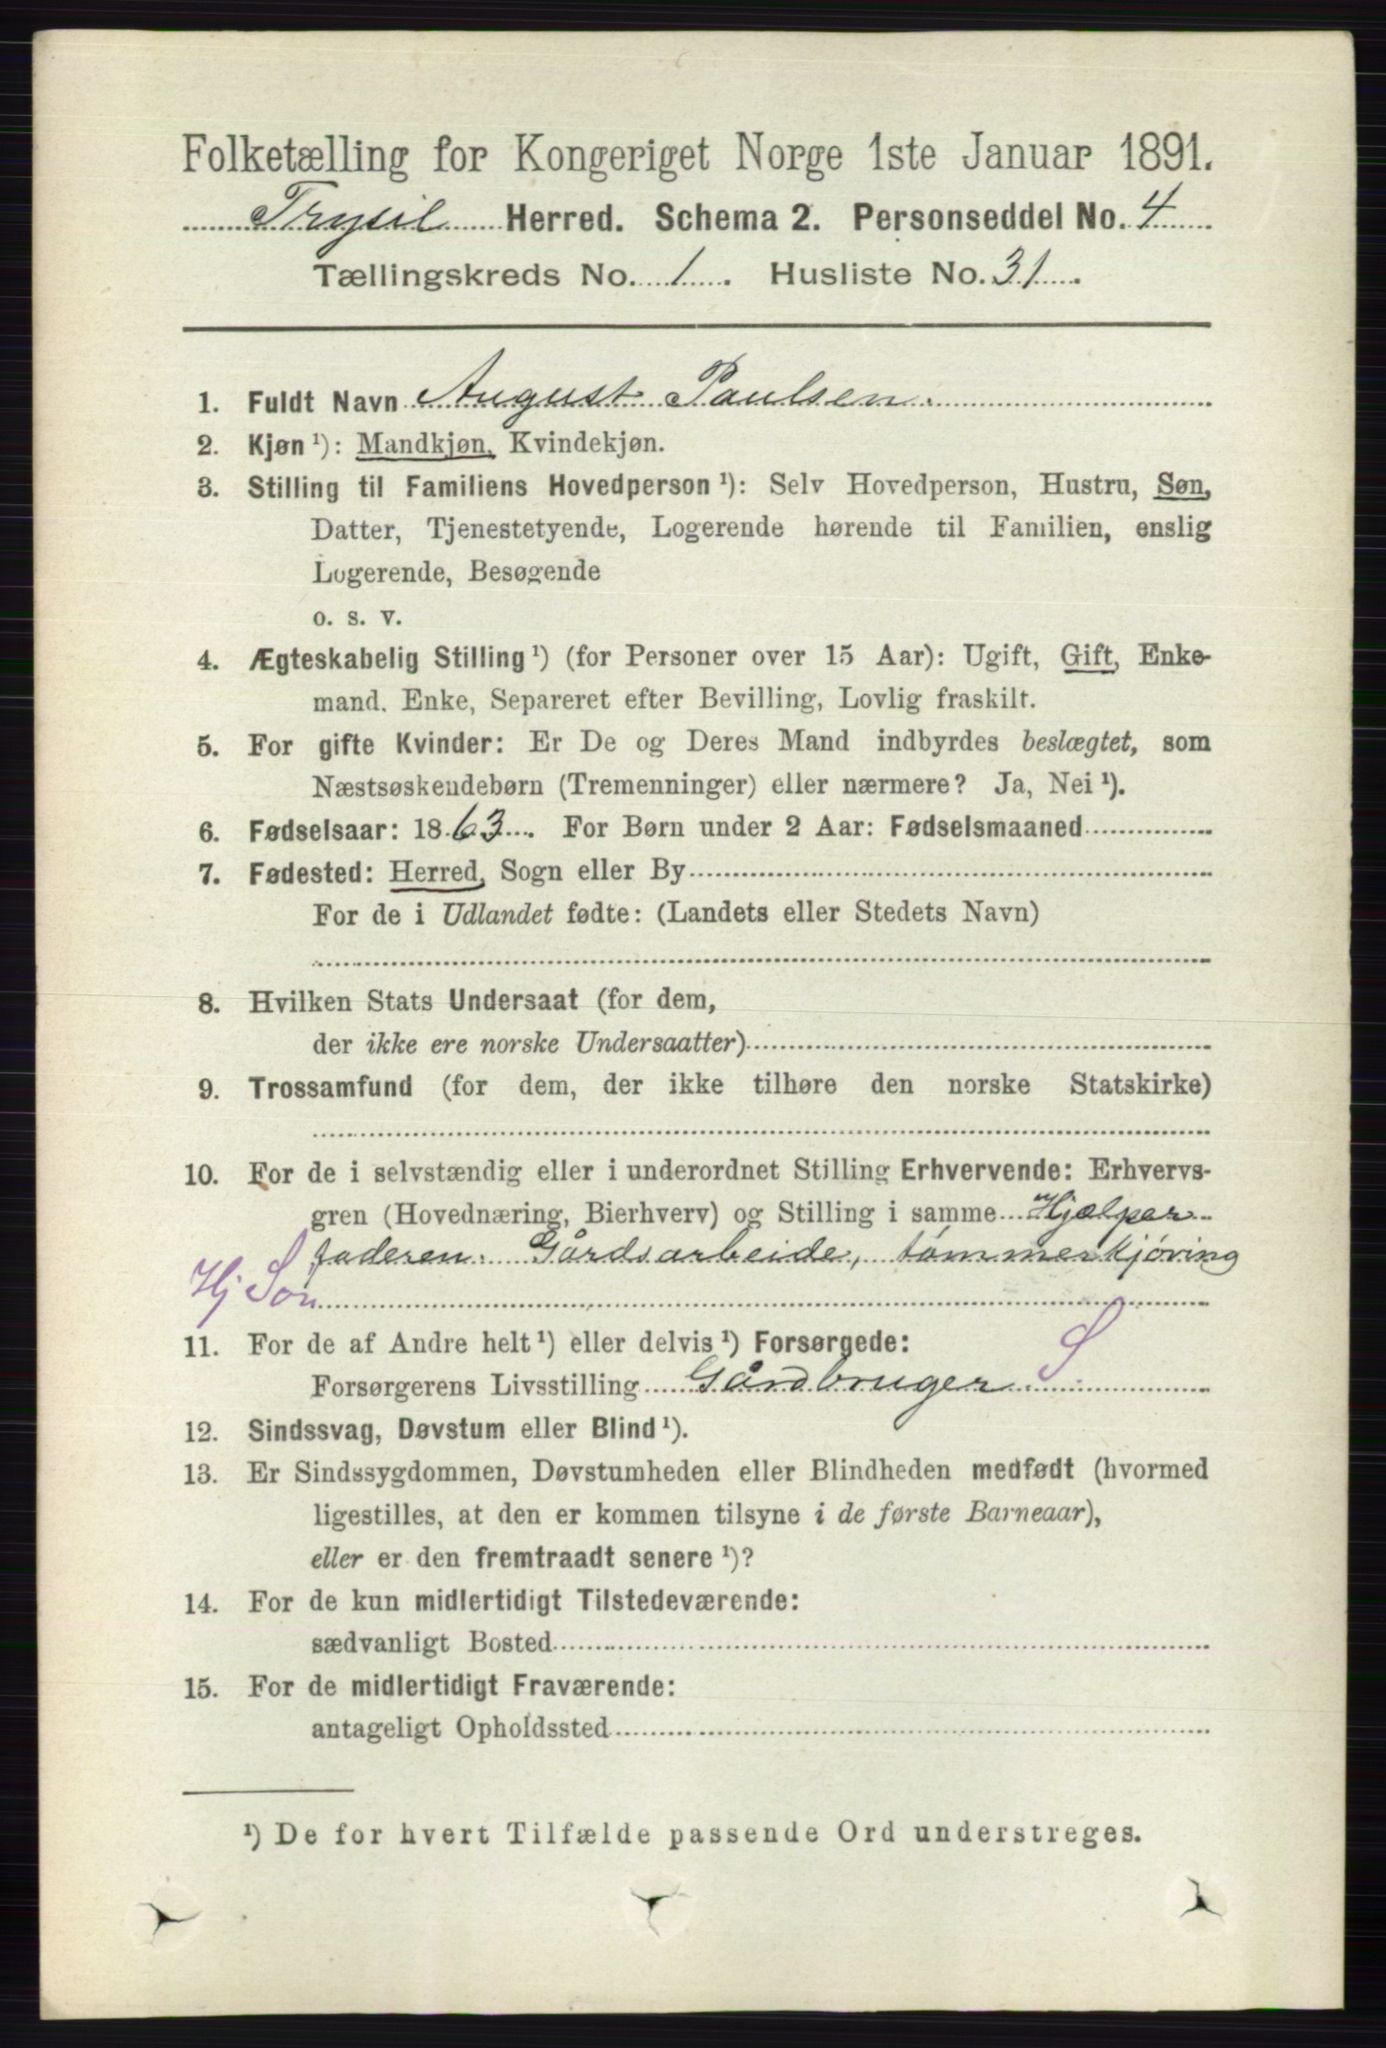 Folketælling for Kongeriget Norge 1ste Januar 1891.
Trysil Herred. Schema 2. Personseddel No. 4
Tællingskreds No. 1. Husliste No. 31.
1. Fuldt Navn August Paulsen.
2. Kjøn ¹): Mandkjøn, Kvindekjøn.
3. Stilling til Familiens Hovedperson ¹): Selv Hovedperson, Hustru, Søn,
Datter, Tjenestetyende, Logerende hørende til Familien, enslig
Logerende, Besøgende
o. s. v.
4. Ægteskabelig Stilling ¹) (for Personer over 15 Aar): Ugift, Gift, Enke-
mand, Enke, Separeret efter Bevilling, Lovlig fraskilt.
5. For gifte Kvinder: Er De og Deres Mand indbyrdes beslægtet, som
Næstsøskendebørn (Tremenninger) eller nærmere? Ja, Nei ¹).
6. Fødselsaar: 1863. For Børn under 2 Aar: Fødselsmaaned
7. Fødested: Herred, Sogn eller By
For de i Udlandet fødte: (Landets eller Stedets Navn)
8. Hvilken Stats Undersaat (for dem,
der ikke ere norske Undersaatter)
9. Trossamfund (for dem, der ikke tilhøre den norske Statskirke)
10. For de i selvstændig eller i underordnet Stilling Erhvervende: Erhvervs-
gren (Hovednæring, Bierhverv) og Stilling i samme Hjælper
faderen. Gårdsarbeide, tømmerkjøring
Hj Søn
11. For de af Andre helt ¹) eller delvis ¹) Forsørgede:
Forsørgerens Livsstilling Gårdbruger S
12. Sindssvag, Døvstum eller Blind ¹).
13. Er Sindssygdommen, Døvstumheden eller Blindheden medfødt (hvormed
ligestilles, at den er kommen tilsyne i de første Barneaar),
eller er den fremtraadt senere ¹)?
14. For de kun midlertidigt Tilstedeværende:
sædvanligt Bosted
15. For de midlertidigt Fraværende:
antageligt Opholdssted
¹) De for hvert Tilfælde passende Ord understreges.